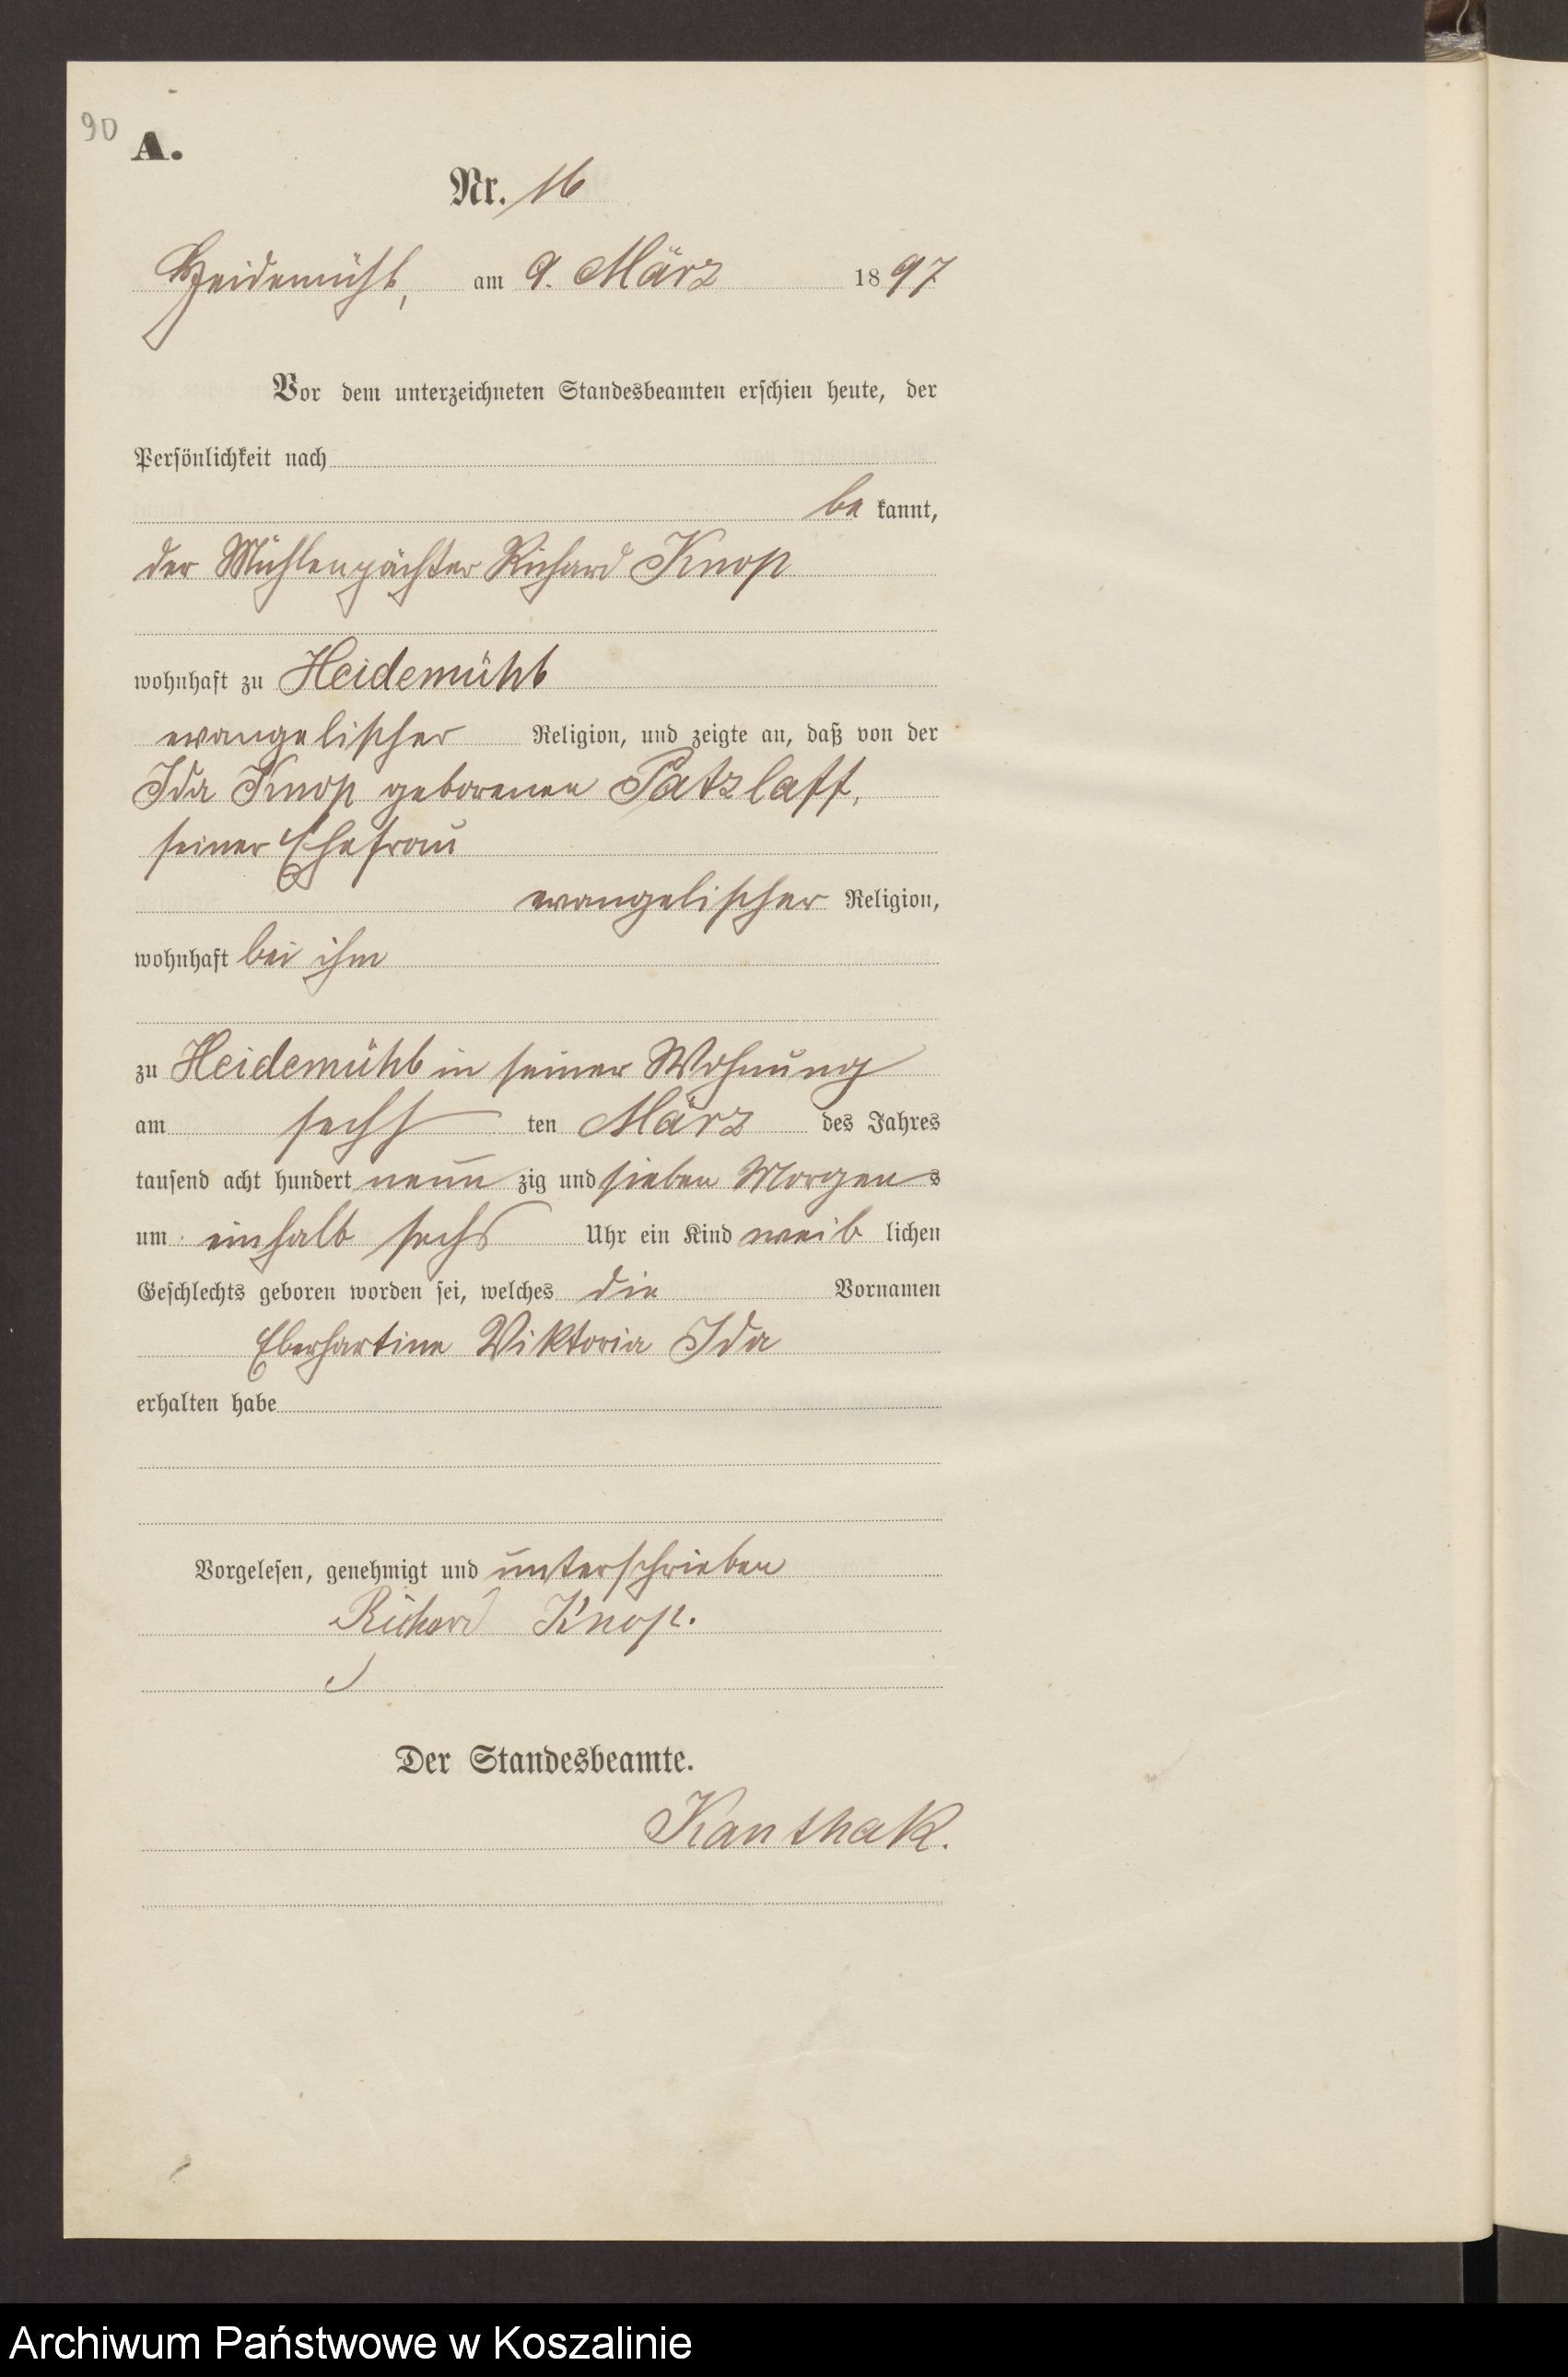 90
A.
Nr. 16
Heidemühl, am 9. März 1897
Vor dem unterzeichneten Standesbeamten erschien heute, der
Persönlichkeit nach
be kannt,
der Mühlenpächter Richard Knop
wohnhaft zu Heidemühl
evangelischer Religion, und zeigte an, daß von der
Ida Knop geborenen Patzlaff,
seiner Ehefrau
evangelischer Religion,
wohnhaft bei ihm
zu Heidemühl in seiner Wohnung
am sechsten März des Jahres
tausend acht hundert neun zig und sieben Morgens
um einhalb sechs Uhr ein Kind weib lichen
Geschlechts geboren worden sei, welches die Vornamen
Eberhartine Viktoria Ida
erhalten habe
Vorgelesen, genehmigt und unterschrieben
Richard Knop.
Der Standesbeamte.
Kanthak.
Archiwum Państwowe w Koszalinie